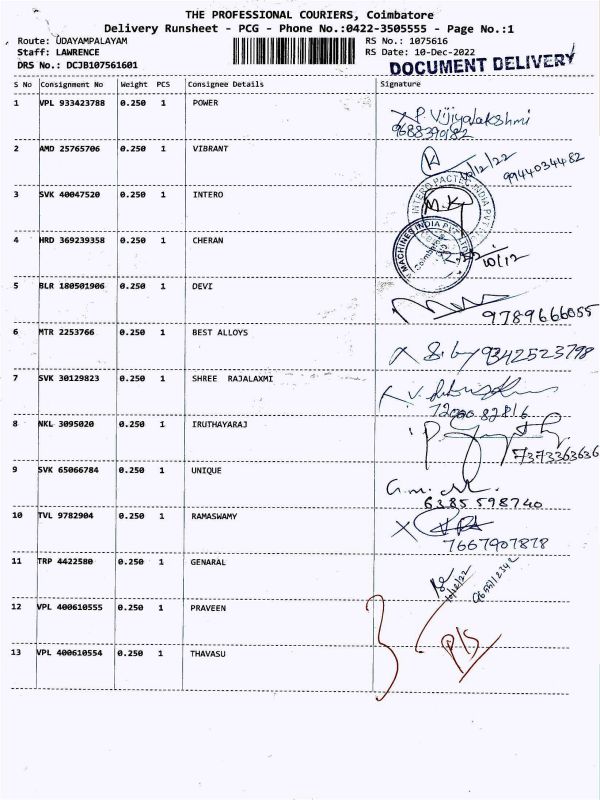 THE PROFESSIONAL COURIERS, Coimbatore
Delivery Runsheet - PCG - Phone No.:0422-3505555 - Page No.:1
Route: UDAYAMPALAYAM RS No.: 1075616
Staff: LAWRENCE RS Date: 10-Dec-2022
DRS No.: DCJB107561601 DOCUMENT DELIVERY
S No Consignment No Weight PCS Consignee Details Signature
1 VPL 933423788 0.250 1 POWER P. Vijiyalakshmi
9688390182
2 AMD 25765706 0.250 1 VIBRANT 10/12/22 9944034482
3 SVK 40047520 0.250 1 INTERO
INTERO PACTEC INDIA PVT
4 HRD 369239358 0.250 1 CHERAN 10/12
MACHINES INDIA PVT LTD
Coimbatore
5 BLR 180501906 0.250 1 DEVI
9789666055
6 MTR 2253766 0.250 1 BEST ALLOYS 9342523798
7 SVK 30129823 0.250 1 SHREE RAJALAXMI
7200082816
8 NKL 3095020 0.250 1 IRUTHAYARAJ
7373363636
9 SVK 65066784 0.250 1 UNIQUE
6385598740
10 TVL 9782904 0.250 1 RAMASWAMY
7667907878
11 TRP 4422580 0.250 1 GENARAL 10/12/22
12 VPL 400610555 0.250 1 PRAVEEN
P/S
13 VPL 400610554 0.250 1 THAVASU